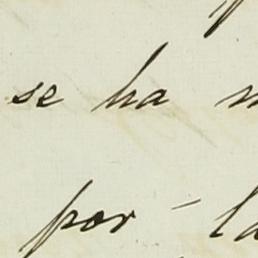 se ha
por - la